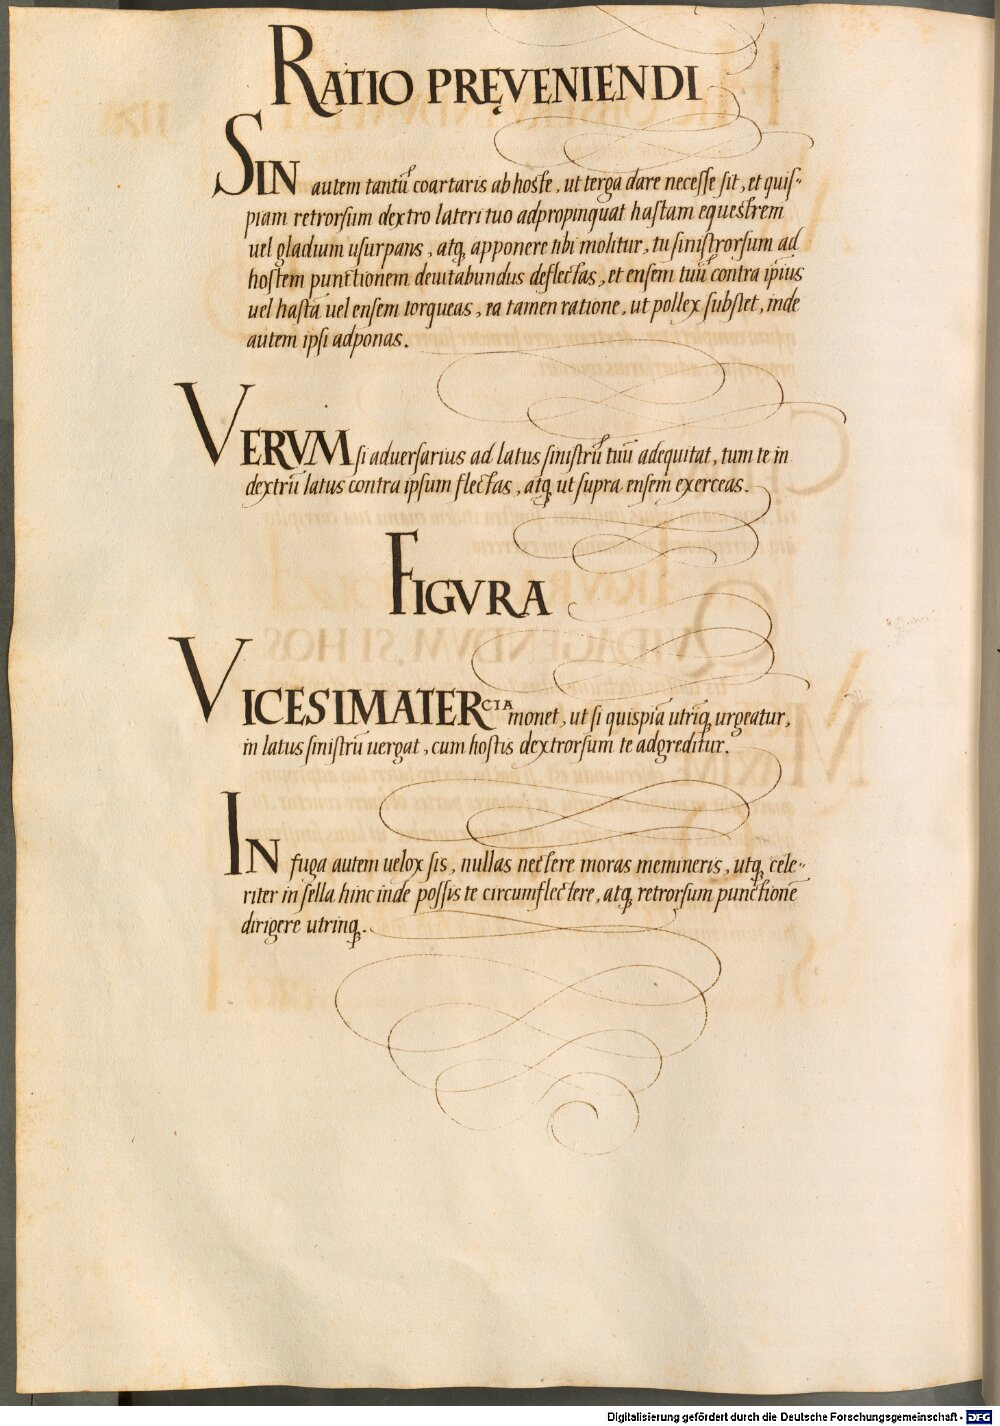 RATIO PRĘVENIENDI
SIN autem tantū coartaris ab hoste, ut terga dare necesse sit, et quis-
piam retrorsum dextro lateri tuo adpropinquat hastam equestrem
uel gladium usurpans, atq₃ apponere tibi molitur, tu sinistrorsum ad
hostem punctionem deuitabundus deflectas, et ensem tuū contra ipsius
uel hastā uel ensem torqueas, ea tamen ratione, ut pollex subslet, inde
autem ipsi adponas.
VERVM si aduersarius ad latus sinistrū tuū adequitat, tum te in
dextrū latus contra ipsum flectas, atq₃ ut supra ensem exerceas.
FIGVRA
VICESIMATERCIA monet, ut si quispiā utriq₃ urgeatur,
in latus sinistrū uergat, cum hostis dextrorsum te adgreditur.
IN fuga autem uelox sis, nullas nectere moras memineris, utq₃ cele-
riter in sella hinc inde possis te circumflectere, atq₃ retrorsum punctionē
dirigere utrinq₃.
Digitalisierung gefördert durch die Deutsche Forschungsgemeinschaft - DFG